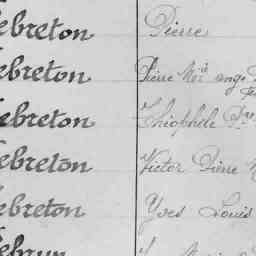 Lebreton Pierre
Lebreton Pierre Mie ange
Lebreton Théophile Pre
Lebreton Victor Pierre
Lebreton Yves Louis
Lebrun